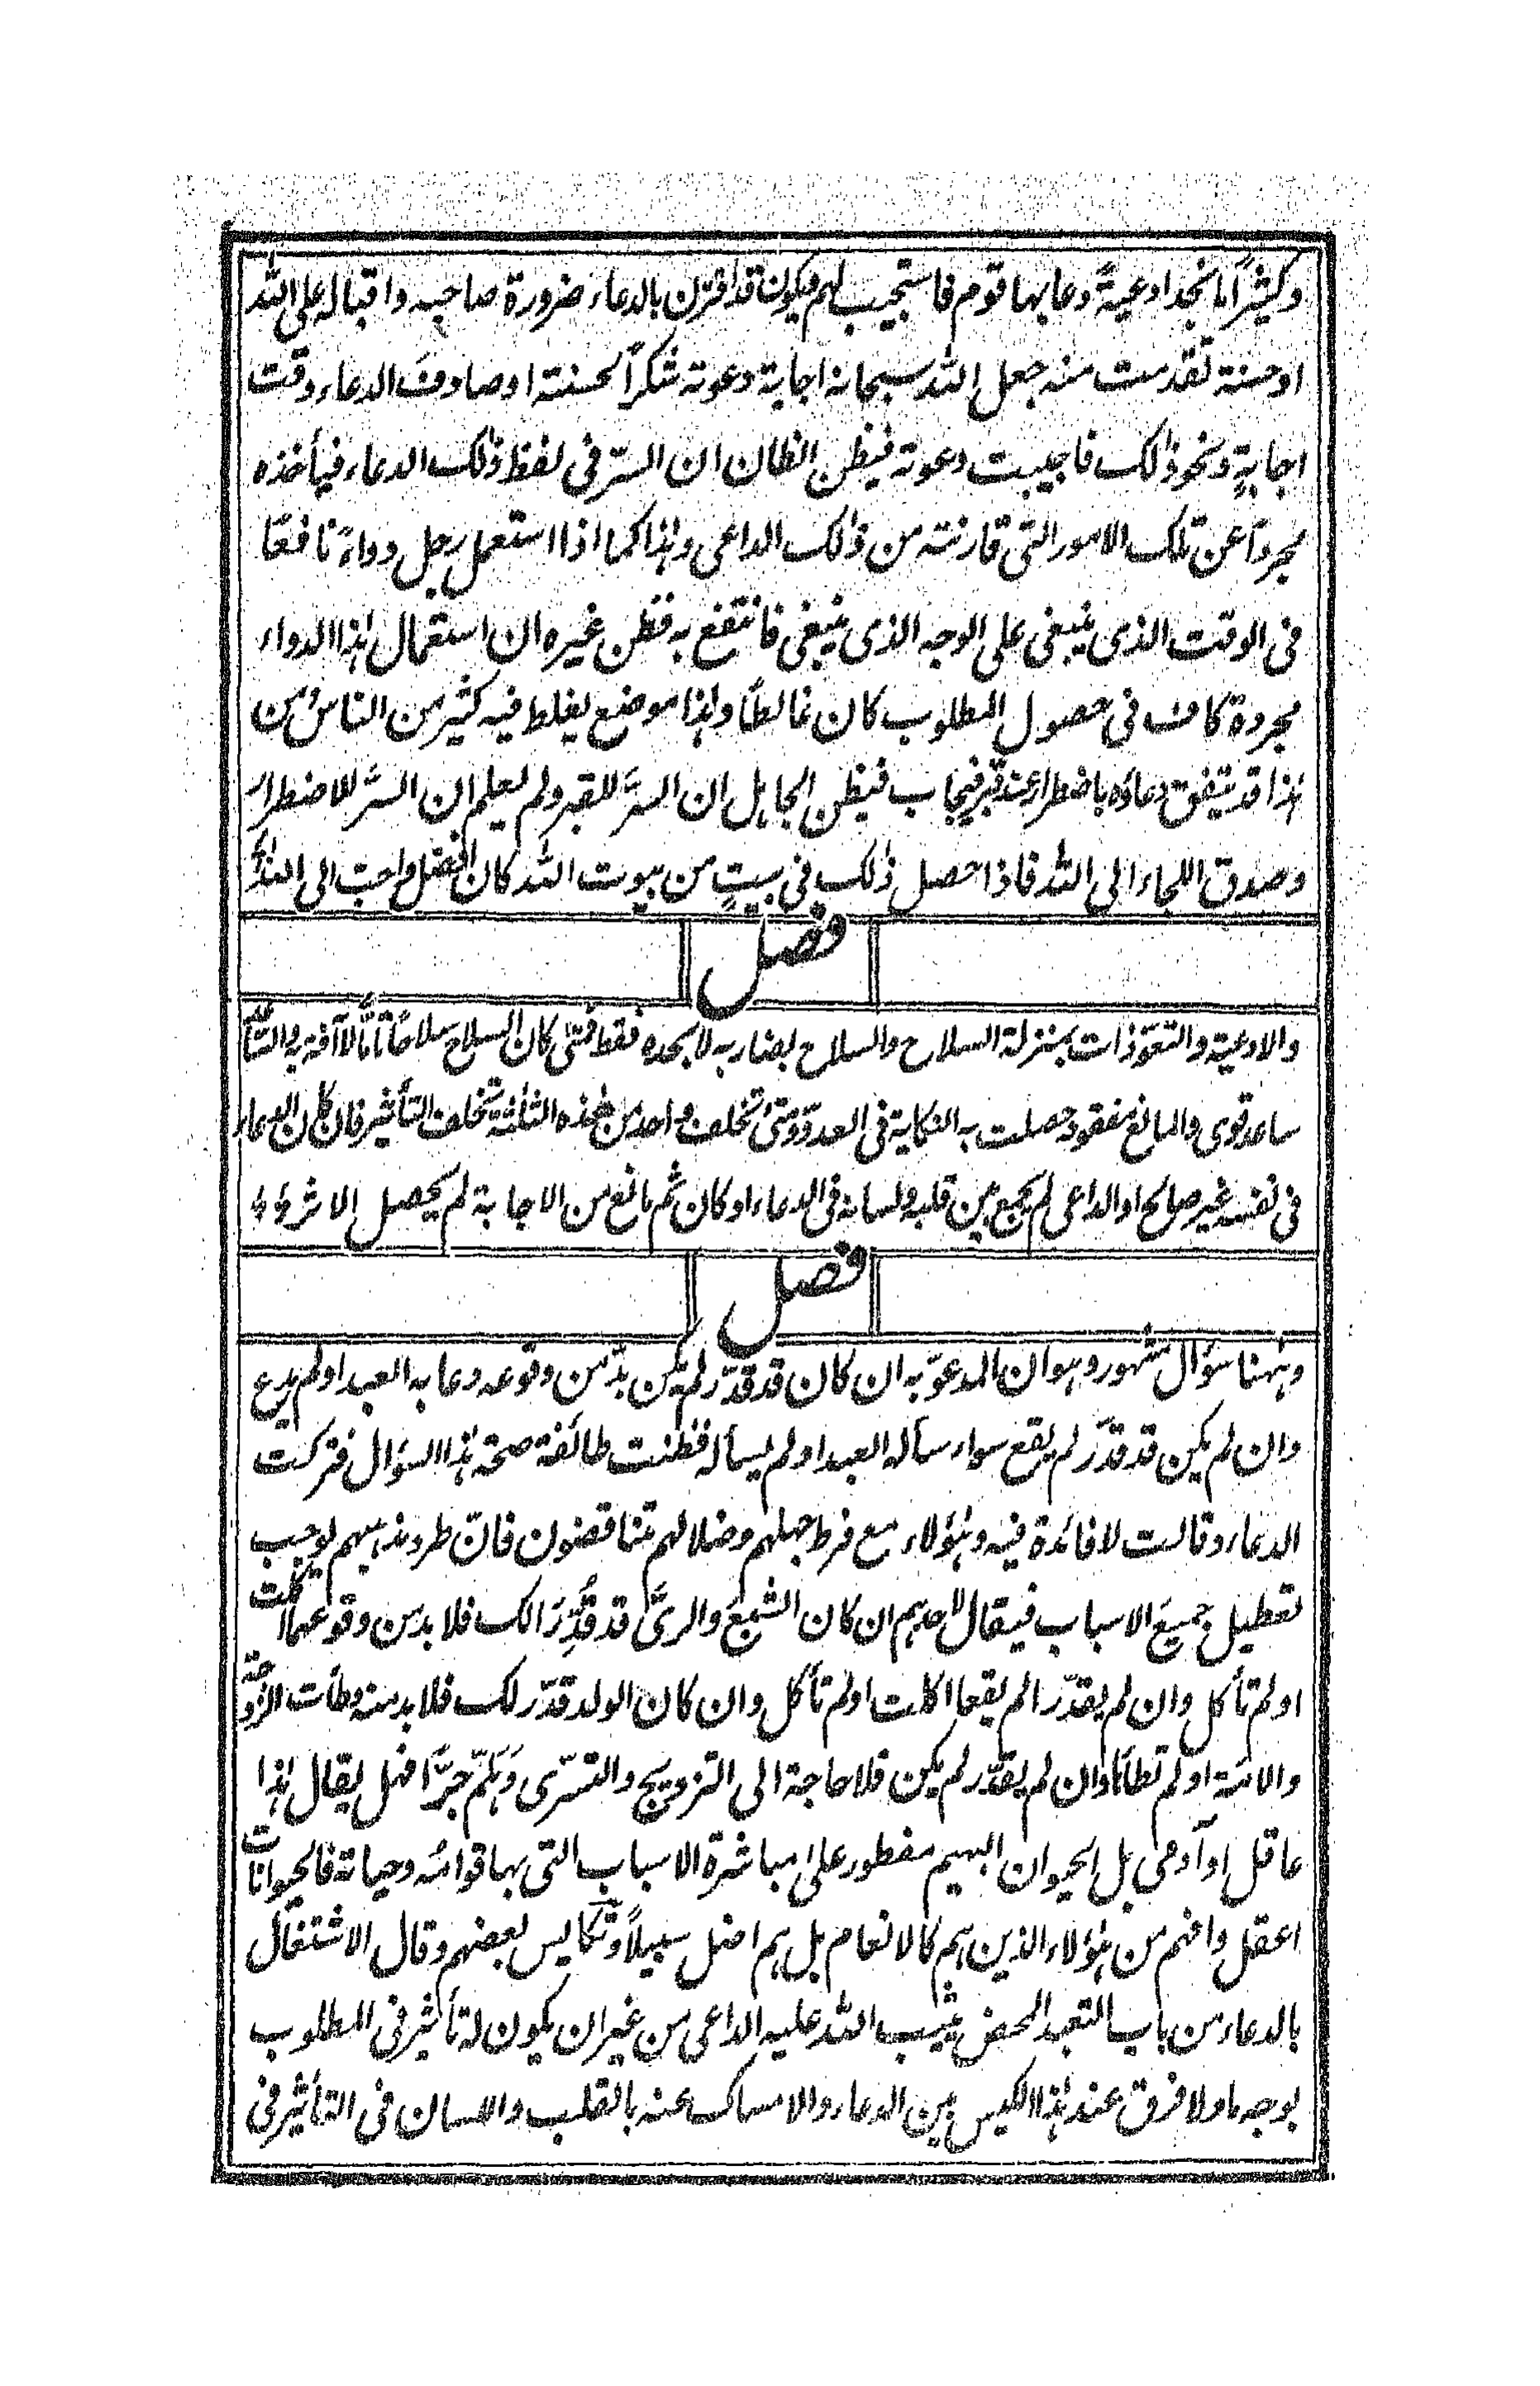 وكثيراً ما نجد ادعيةً دعا بها قوم فاستجيب لهم ويكون قد اقترن بالدعاء ضرورة صاحبه واقباله على الله
او حسنة تقدمت منه جعل الله سبحانه اجابة دعوته شكراً لحسنته او صادف الدعاء وقت
اجابةٍ ونحو ذلك فاجيبت دعوته فيظن الظان ان السرّ في لفظ ذلك الدعاء فيأخذه
مجرداً عن تلك الامور التي قارنته من ذلك الداعي وهذا كما اذا استعمل رجل دواءً نافعًا
في الوقت الذي ينبغي على الوجه الذي ينبغي فانتفع به فظن غيره ان استعمال هذا الدواء
مجردة كاف في حصول المطلوب كان غالطًا وهذا موضع يغلط فيه كثير من الناس ومن
هذا قد يتفق دعاؤه باضطرار عند قبر فيجاب فيظن الجاهل ان السرّ للقبر ولم يعلم ان السرّ للاضطرار
وصدق اللجاء الى الله فاذا حصل ذلك في بيتٍ من بيوت الله كان افضل واحبّ الى الله
فصل
والادعية والتعوّذات بمنزلة السلاح والسلاح بضاربه لا بحده فقط فمتى كان السلاح سلاحًا تامًّا لا آفة به والساعد
ساعد قوي والمانع مفقود حصلت به النكاية في العدوّ ومتى تخلف واحد من هذه الثلثة تخلف التأثير فان كان الدعاء
في نفسه غير صالح او الداعي لم يجمع بين قلبه ولسانه في الدعاء او كان ثم مانع من الاجابة لم يحصل الاثر
فصل
وههنا سؤال مشهور وهو ان المدعوّ به ان كان قد قدّر لم يكن بدّ من وقوعه دعا به العبد او لم يدع
وان لم يكن قد قدّر لم يقع سواء سأله العبد او لم يسأله فظنت طائفة صحة هذا السؤال فتركت
الدعاء وقالت لا فائدة فيه وهؤلاء مع فرط جهلهم وضلالهم متناقضون فانّ طرد مذهبهم يوجب
تعطيل جميع الاسباب فيقال لاحدهم ان كان الشبع والريّ قد قُدِّرَا لك فلا بد من وقوعهما اكلت
او لم تأكل وان لم يقدّرا لم يقعا اكلت او لم تأكل وان كان الولد قدّر لك فلا بد منه وطأت الزوجة
والامة او لم تطأها وان لم يقدّر لم يكن فلا حاجة الى التزويج والتسرّي وَهَلُمّ جرًّا فهل يقال هذا
عاقل او آدمي بل الحيوان البهيم مفطور على مباشرة الاسباب التي بها قوامه وحياته فالحيوانات
اعقل وافهم من هؤلاء الذين هم كالانعام بل هم اضل سبيلاً وتكايس بعضهم وقال الاشتغال
بالدعاء من باب التعبد المحض يثيب الله عليه الداعي من غير ان يكون له تأثير في المطلوب
بوجه ما ولا فرق عند هذا الكيس بين الدعاء والامساك عنه بالقلب واللسان في التأثير في